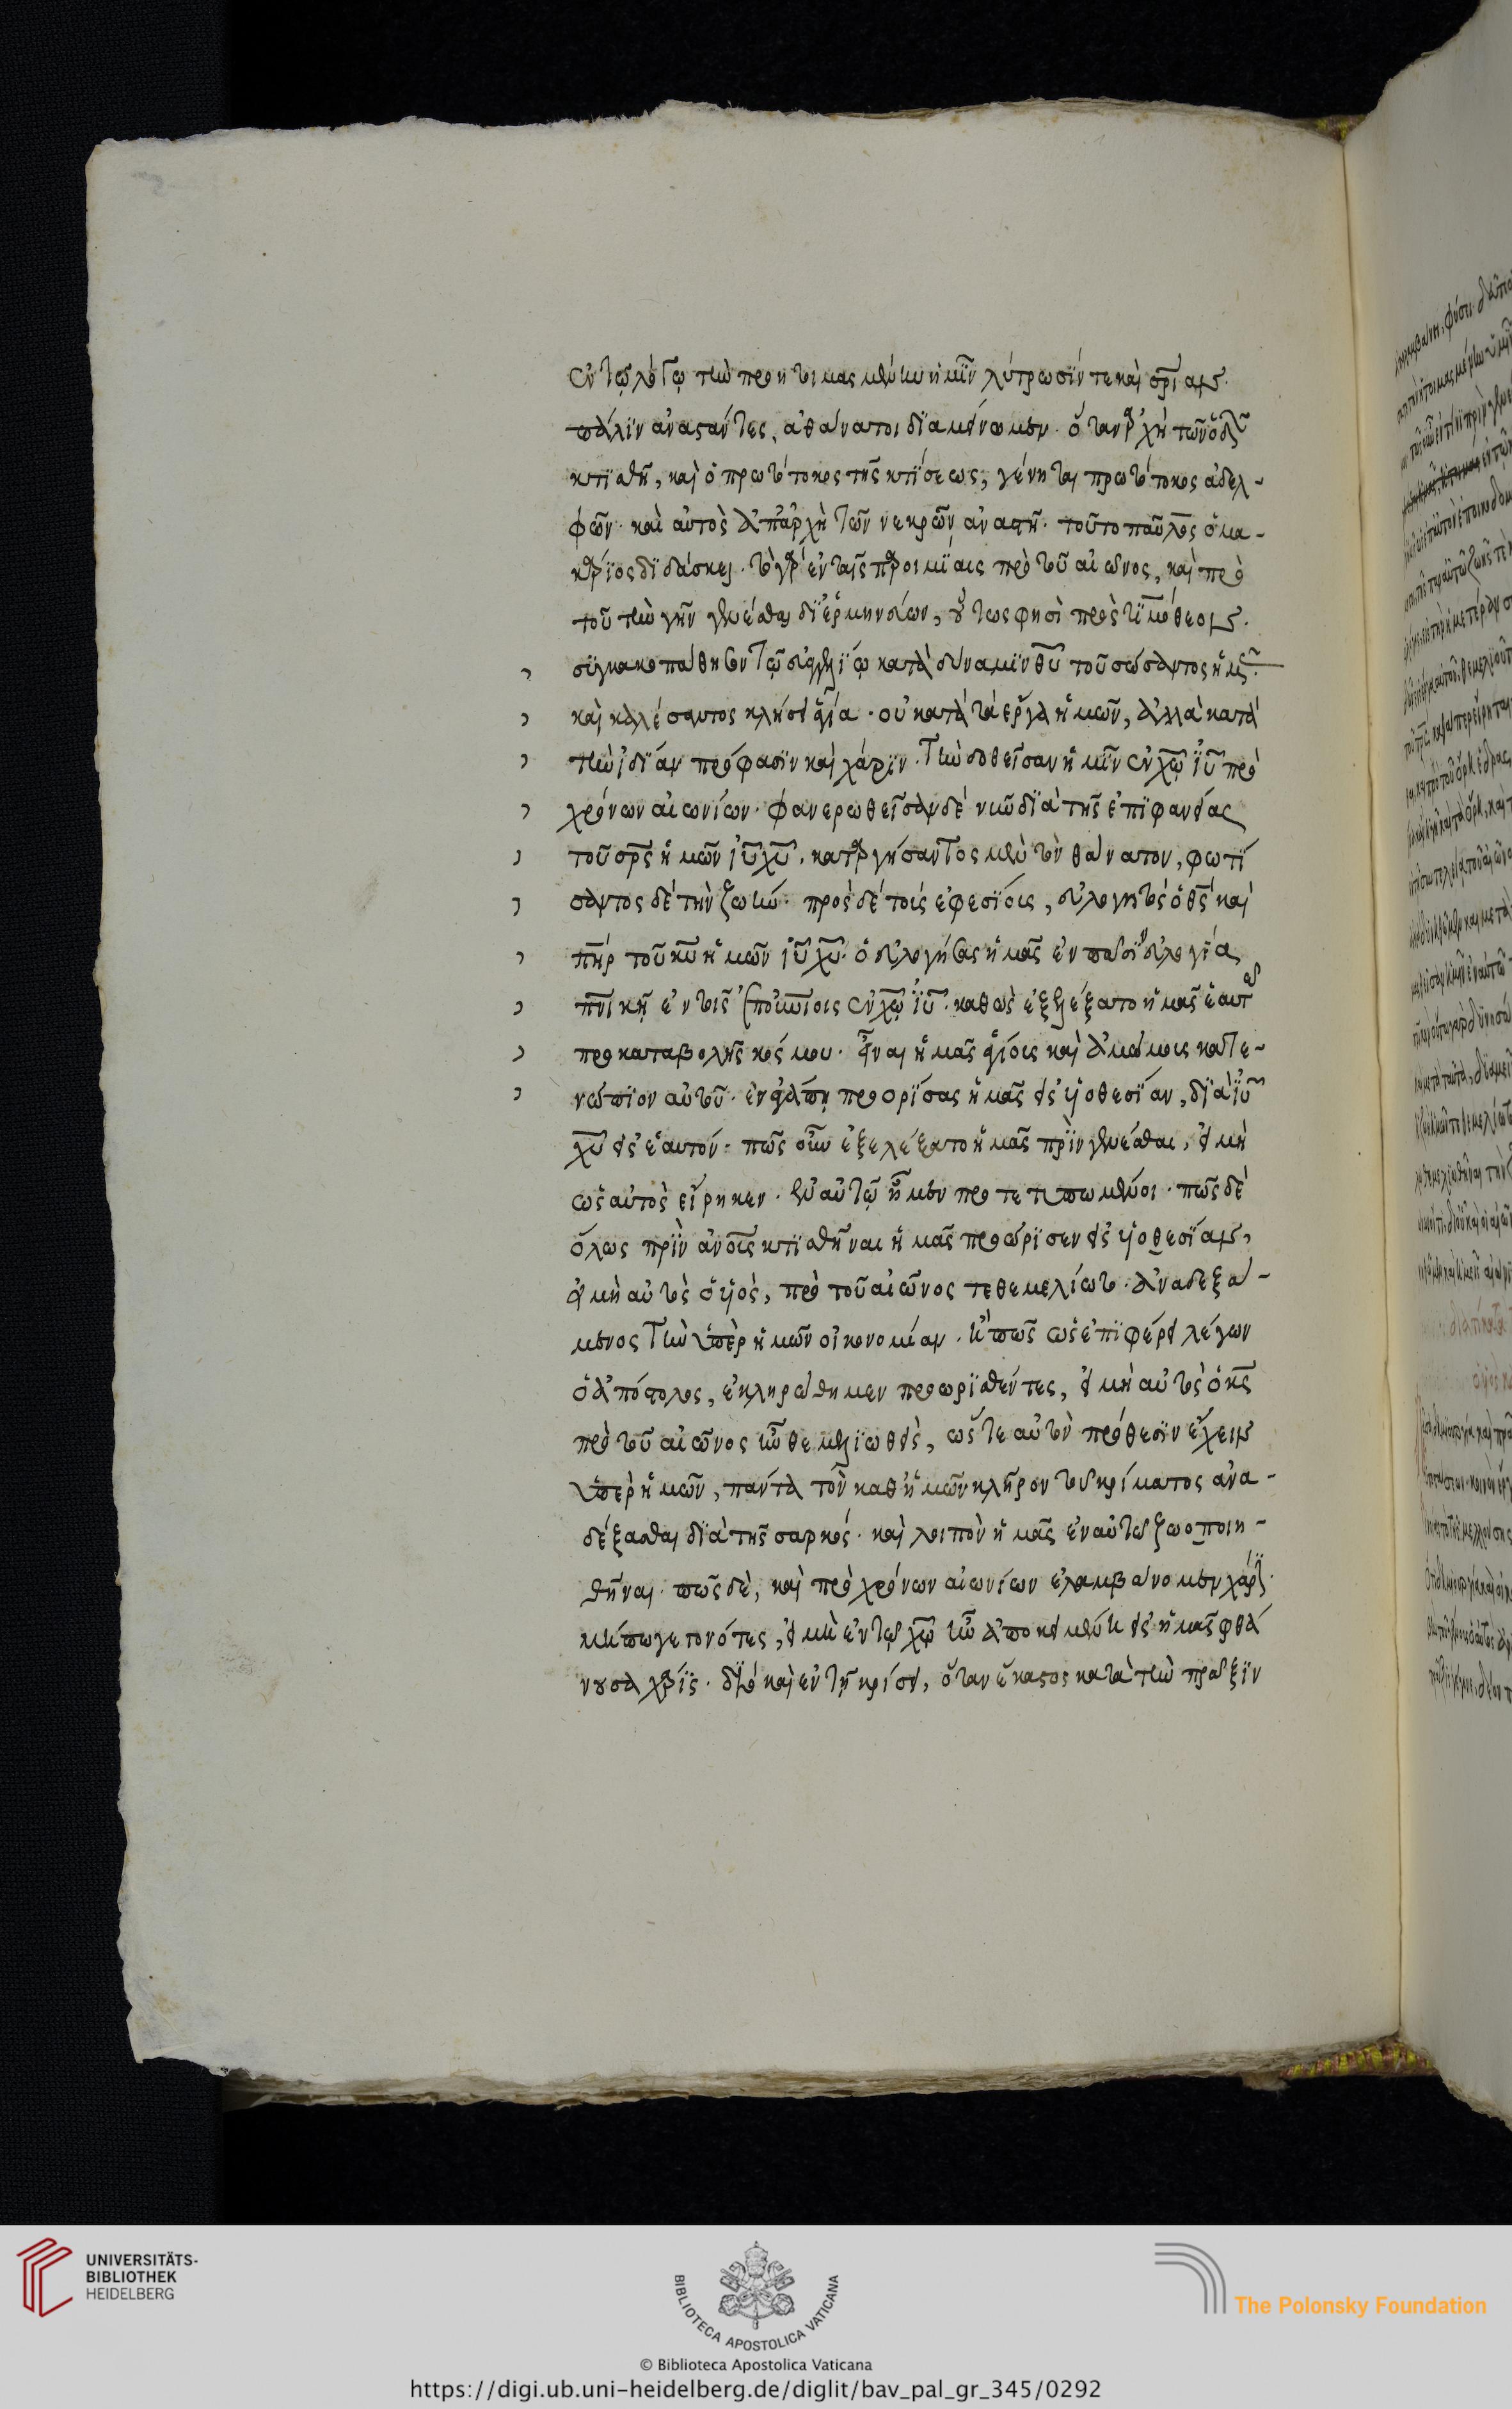 ἐν τῷ λόγῳ τὴν προητοιμασμένην ἡμῖν λύτρωσίν τε καὶ σρίαν.
πάλιν ἀναστάντες, ἀθάνατοι διαμένωμεν. ὅταν ἀρχὴ τῶν ὁδῶν
κτισθῇ, καὶ ὁ πρωτότοκος τῆς κτίσεως, γένηται πρωτότοκος ἀδελ-
φῶν. καὶ αὐτὸς ἀπαρχὴ τῶν νεκρῶν ἀναστῇ. τοῦτο παῦλος ὁ μα-
κάριος διδάσκει. τὸ γὰρ ἐν ταῖς παροιμίαις πρὸ τοῦ αἰῶνος, καὶ πρὸ
τοῦ τὴν γῆν γενέσθαι διερμηνεύων, οὕτως φησὶ πρὸς τιμόθεον.
συγκακοπάθησον τῷ εὐαγγελίῳ κατὰ δύναμιν θυ τοῦ σώσαντος ἡμᾶς.
καὶ καλέσαντος κλήσει ἁγία. οὐ κατὰ τὰ ἔργα ἡμῶν, ἀλλὰ κατὰ
τὴν ἰδίαν πρόφασιν καὶ χάριν. τὴν δοθεῖσαν ἡμῖν ἐν χω ιυ πρὸ
χρόνων αἰωνίων. φανερωθεῖσαν δὲ νῦν διὰ τῆς ἐπιφανείας
τοῦ σρς ἡμῶν ιυ χυ. καταργήσαντος μὲν τὸν θάνατον, φωτί
σαντος δὲ τὴν ζωήν. πρὸς δὲ τοῖς ἐφεσίοις, εὐλογητὸς ὁ θς καὶ
πηρ τοῦ κυ ἡμῶν ιυ χυ. ὁ εὐλογήσας ἡμᾶς ἐν πάσῃ εὐλογία
πνικῇ ἐν τοῖς ἐπουνίοις ἐν χω ιυ. καθὼς ἐξελέξατο ἡμᾶς ἑαυτ
προ καταβολῆς κόσμου. εἶναι ἡμᾶς ἁγίοις καὶ ἀμώμοις κατε-
νώπιον αὐτοῦ. ἐν ἀγάπῃ προορίσας ἡμᾶς εἰς υἱοθεσίαν, διὰ ιυ
χυ εἰς ἑαυτόν. πῶς οὖν ἐξελέξατο ἡμᾶς πρὶν γενέσθαι, εἰ μὴ
ὡς αὐτὸς εἴρηκεν. ἐν αὐτῷ ἦμεν προτετυπωμένοι. πῶς δὲ
ὅλως πρὶν ἀνοις κτισθῆναι ἡμᾶς προώρισεν εἰς υἱοθεσίαν,
εἰ μὴ αὐτὸς ὁ υἱὸς, πρὸ τοῦ αἰῶνος τεθεμελίωτο. ἀναδεξά-
μενος τὴν ὑπὲρ ἡμῶν οἰκονομίαν. ἢ πῶς ὡς ἐπιφέρει λέγων
ὁ ἀπόστολος, ἐκληρώθημεν προωρισθέντες, εἰ μὴ αὐτὸς ὁ κς
πρὸ τοῦ αἰῶνος ἦν θεμελιωθεὶς, ὥστε αὐτὸν πρόθεσιν ἔχειν
ὑπὲρ ἡμῶν, πάντα τὸν καθ ἡμῶν κλῆρον τοῦ κρίματος ἀνα-
δέξασθαι διὰ τῆς σαρκός. καὶ λοιπὸν ἡμᾶς ἐν αὐτῷ ζωοποιη-
θῆναι. πῶς δὲ, καὶ πρὸ χρόνων αἰωνίων ἐλαμβάνομεν χάριν.
μήπω γεγονότες, εἰ μὴ ἐν τῷ χω ἦν ἀποκειμένη εἰς ἡμᾶς φθά
νουσα χάρις. διὸ καὶ ἐν τῇ κρίσει, ὅταν ἕκαστος κατὰ τὴν πρᾶξιν
UNIVERSITÄTS-
BIBLIOTHEK
HEIDELBERG
BIBLIOTECA APOSTOLICA VATICANA
The Polonsky Foundation
© Biblioteca Apostolica Vaticana
https://digi.ub.uni-heidelberg.de/diglit/bav_pal_gr_345/0292